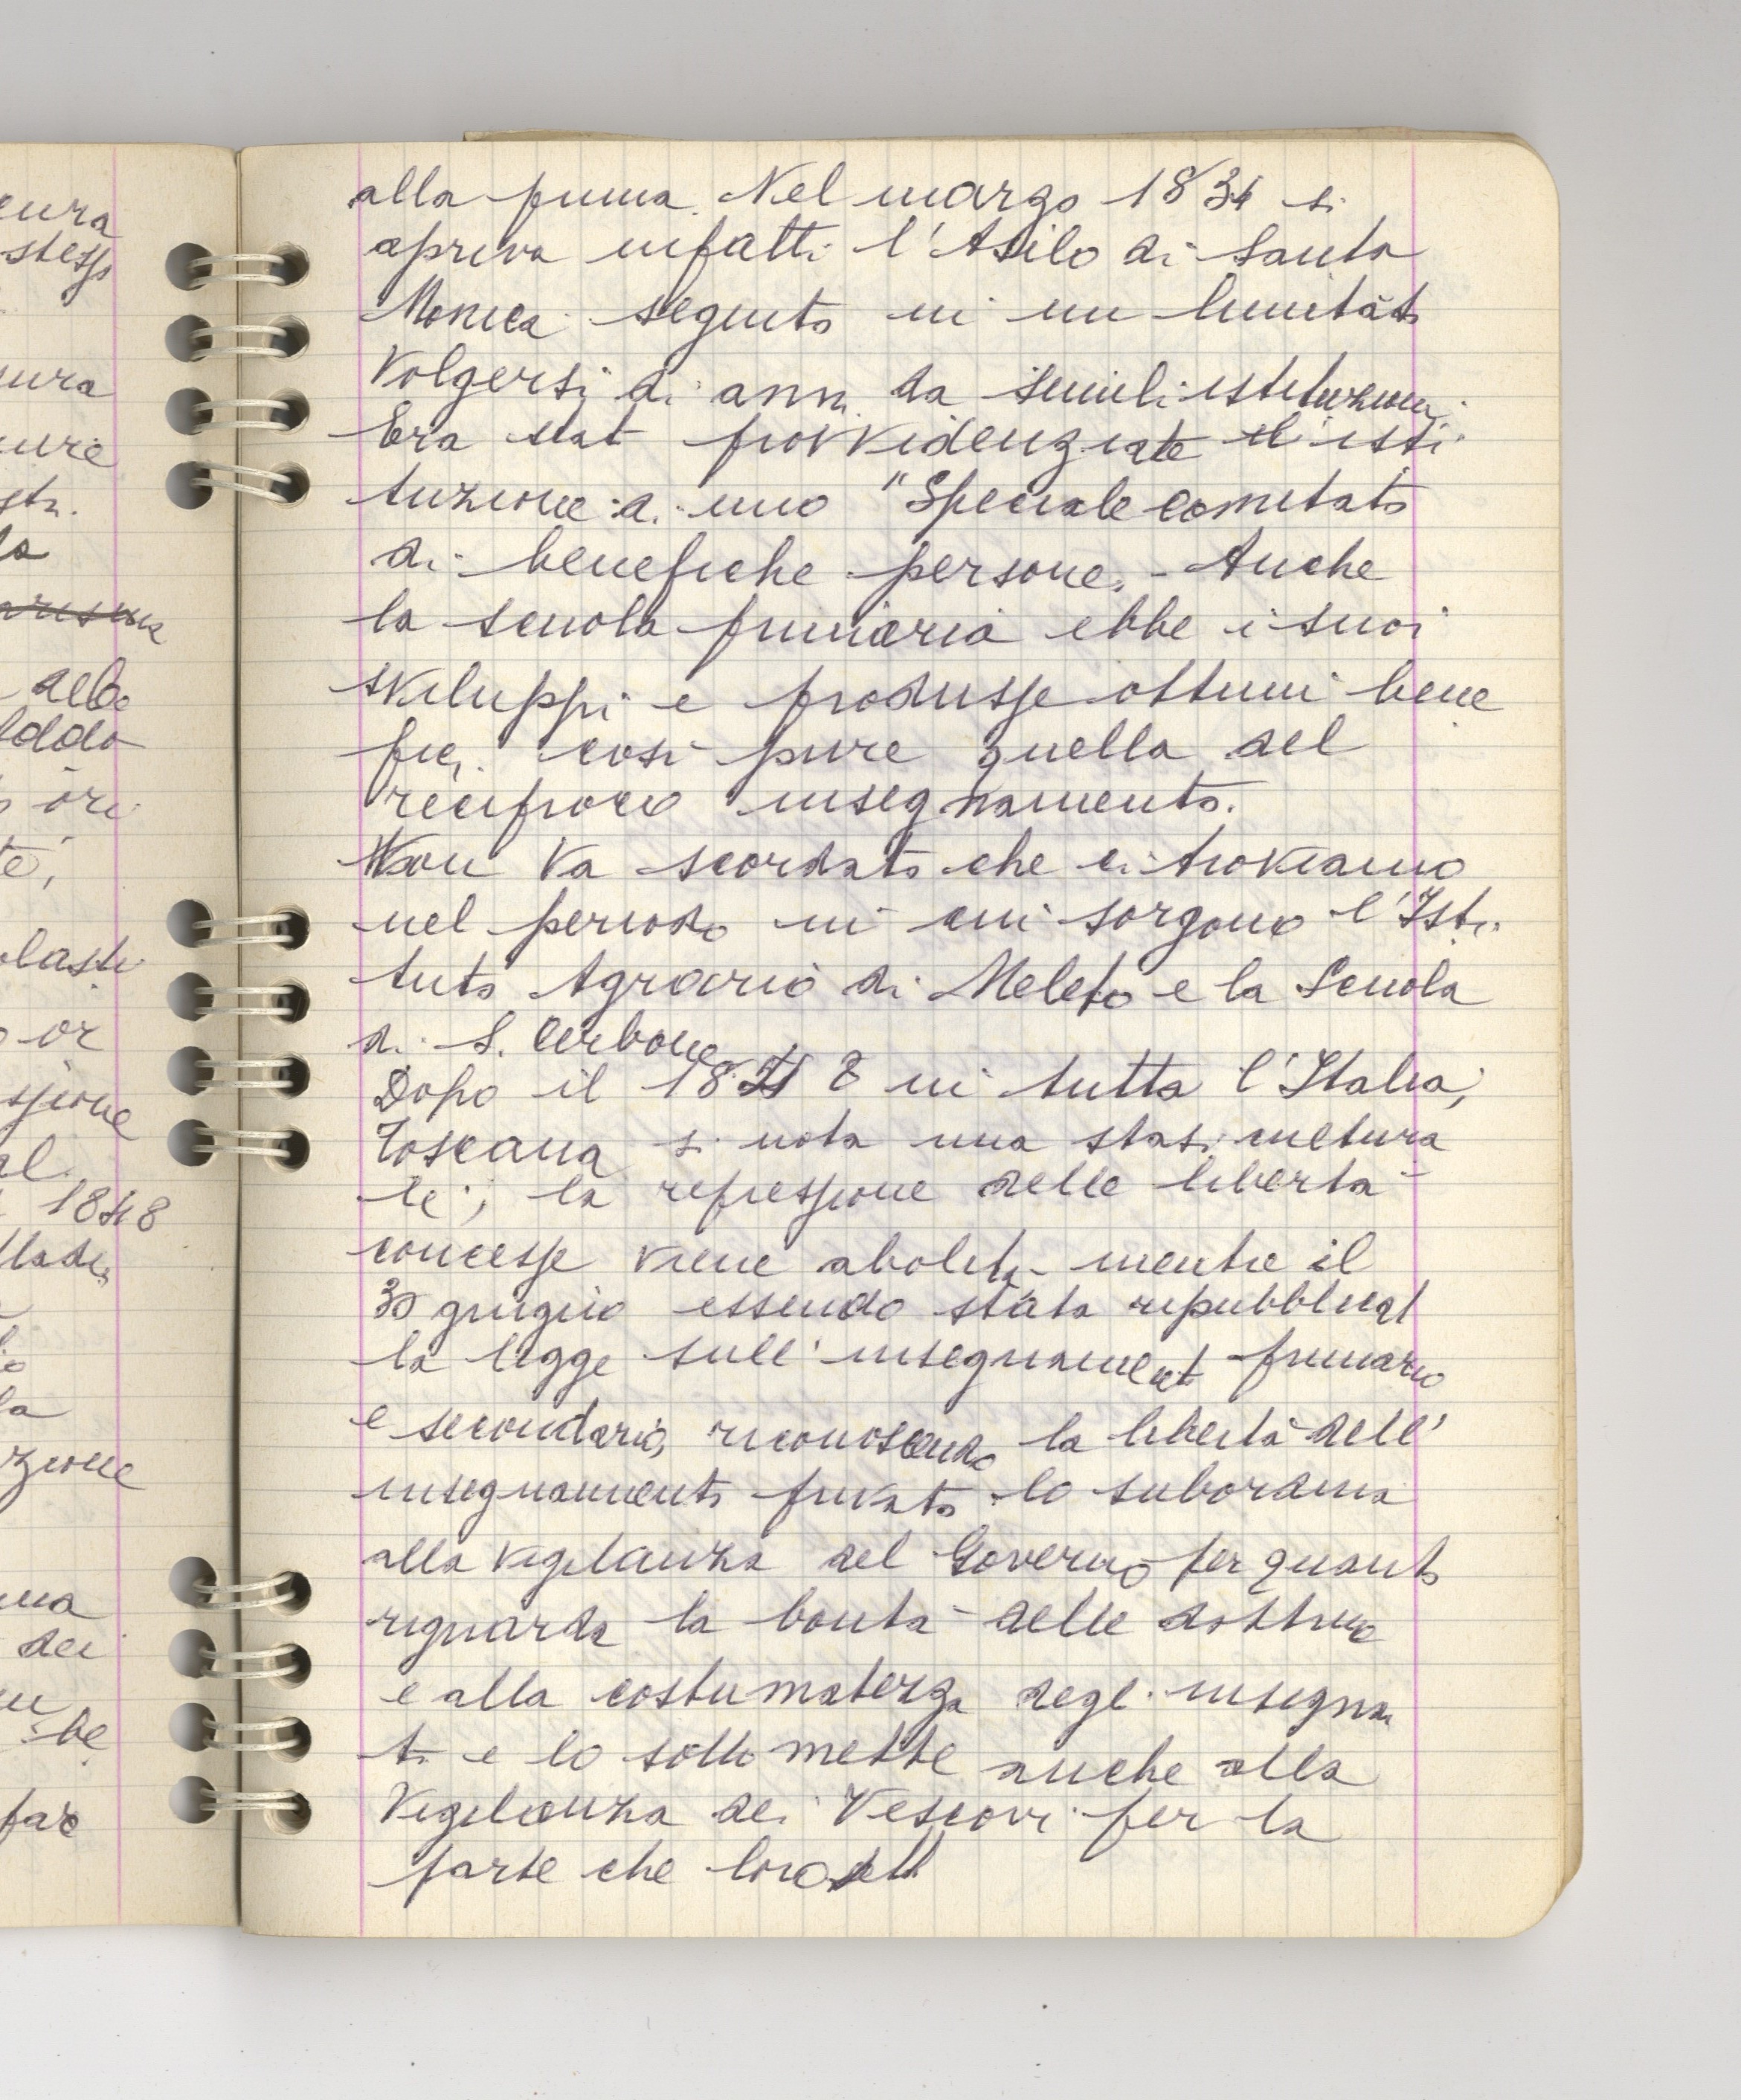 alla prima. Nel marzo 1834 si
apriva infatti l'Asilo di Santa
Monica seguito in un limitato
volgersi di anni da simili istituzioni.
Era stat provvidenziale l'isti
tuzione di uno "Speciale comitato
di benefiche persone. - Anche
la scuola primaria ebbe i suoi
sviluppi e produsse ottimi bene
fici così pure quella del
reciproco insegnamento.
Non va scordato che ci troviamo
nel periodo in cui sorgono l'Isti
tuto Agrario di Meleto e la Scuola
di S. Cerbone
Dopo il 1848 in tutta l'Italia,
Toscana si nota una stasi cultura
le; la repressione delle libertà
concesse viene abolita - mentre il
30 giugno essendo stata ripubblicat
la legge sull'insegnament primario
e secondario, riconoscendo la libertà dell'
insegnamento privato lo subordina
alla vigilanza del Governo per quanto
riguarda la bontà delle dottrine
e alla costumatezza degli insegnan
ti e lo sottomette anche alla
vigilanza dei Vescovi per la
parte che loro
eura
stesso
ura
ure
la
della
oddo
ori
te,
olasti
o or
ssione
al
1848
la
zione
ma
dei
be
far